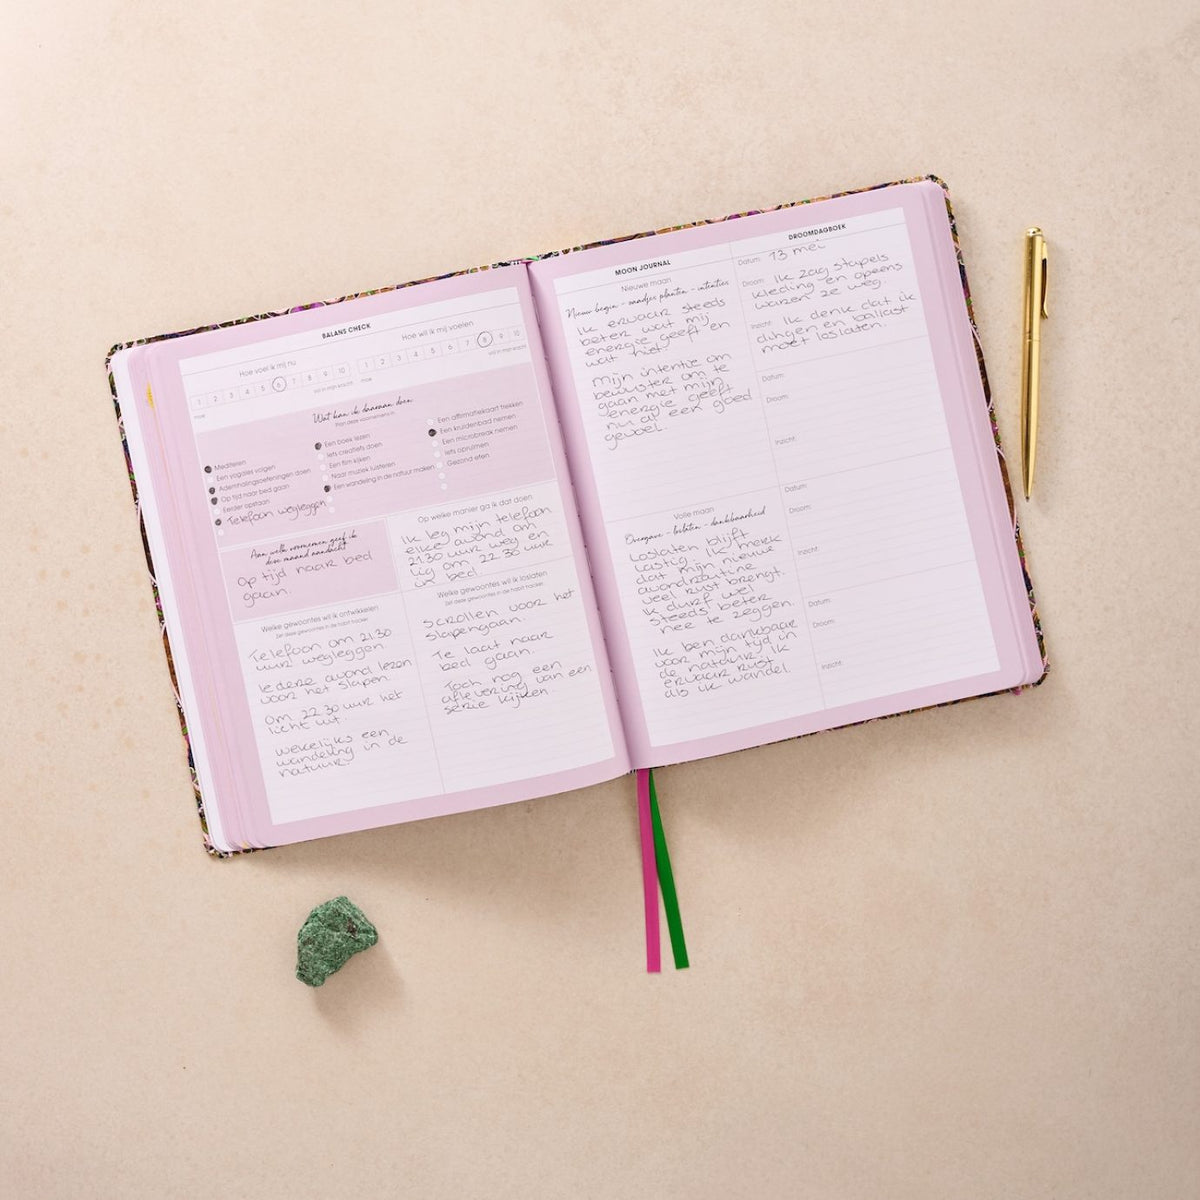 BALANS CHECK
Hoe voel ik mij nu
1 2 3 4 5 6 7 8 9 10
moe vol in mijn kracht
Hoe wil ik mij voelen
1 2 3 4 5 6 7 8 9 10
moe vol in mijn kracht
Wat kan ik daaraan doen
Plan deze voornemens in
Mediteren
Een yogales volgen
Ademhalingsoefeningen doen
Op tijd naar bed gaan
Eerder opstaan
Telefoon wegleggen
Een boek lezen
Iets creatiefs doen
Een film kijken
Naar muziek luisteren
Een wandeling in de natuur maken
Een affirmatiekaart trekken
Een kruidenbad nemen
Een microbreak nemen
Iets opruimen
Gezond eten
Aan welk voornemen geef ik
deze maand aandacht
Op tijd naar bed
gaan.
Op welke manier ga ik dat doen
Ik leg mijn telefoon
elke avond om
21.30 uur weg en
lig om 22.30 uur
in bed.
Welke gewoontes wil ik ontwikkelen
Zet deze gewoontes in de habit tracker
Telefoon om 21.30
uur wegleggen.
Iedere avond lezen
voor het slapen.
Om 22.30 uur het
licht uit.
Wekelijks een
wandeling in de
natuur
Welke gewoontes wil ik loslaten
Zet deze gewoontes in de habit tracker
Scrollen voor het
slapengaan.
Te laat naar
bed gaan.
Toch nog een
aflevering van een
serie kijken.
MOON JOURNAL
Nieuwe maan
Nieuw begin - zaadjes planten - intenties
Ik ervaar steeds
beter wat mij
energie geeft en
wat niet.
Mijn intentie om
bewuster om te
gaan met mijn
energie geeft
nu al een goed
gevoel.
Volle maan
Overgave - loslaten - dankbaarheid
Loslaten blijft
lastig. Ik merk
dat mijn nieuwe
avondroutine
veel rust brengt.
Ik durf wel
steeds beter
nee te zeggen.
Ik ben dankbaar
voor mijn tijd in
de natuur. Ik
ervaar rust
als ik wandel.
DROOMDAGBOEK
Datum: 13 mei
Droom: Ik zag stapels
kleding en opeens
waren ze weg.
Inzicht: Ik denk dat ik
dingen en ballast
moet loslaten.
Datum:
Droom:
Inzicht:
Datum:
Droom:
Inzicht:
Datum:
Droom:
Inzicht: